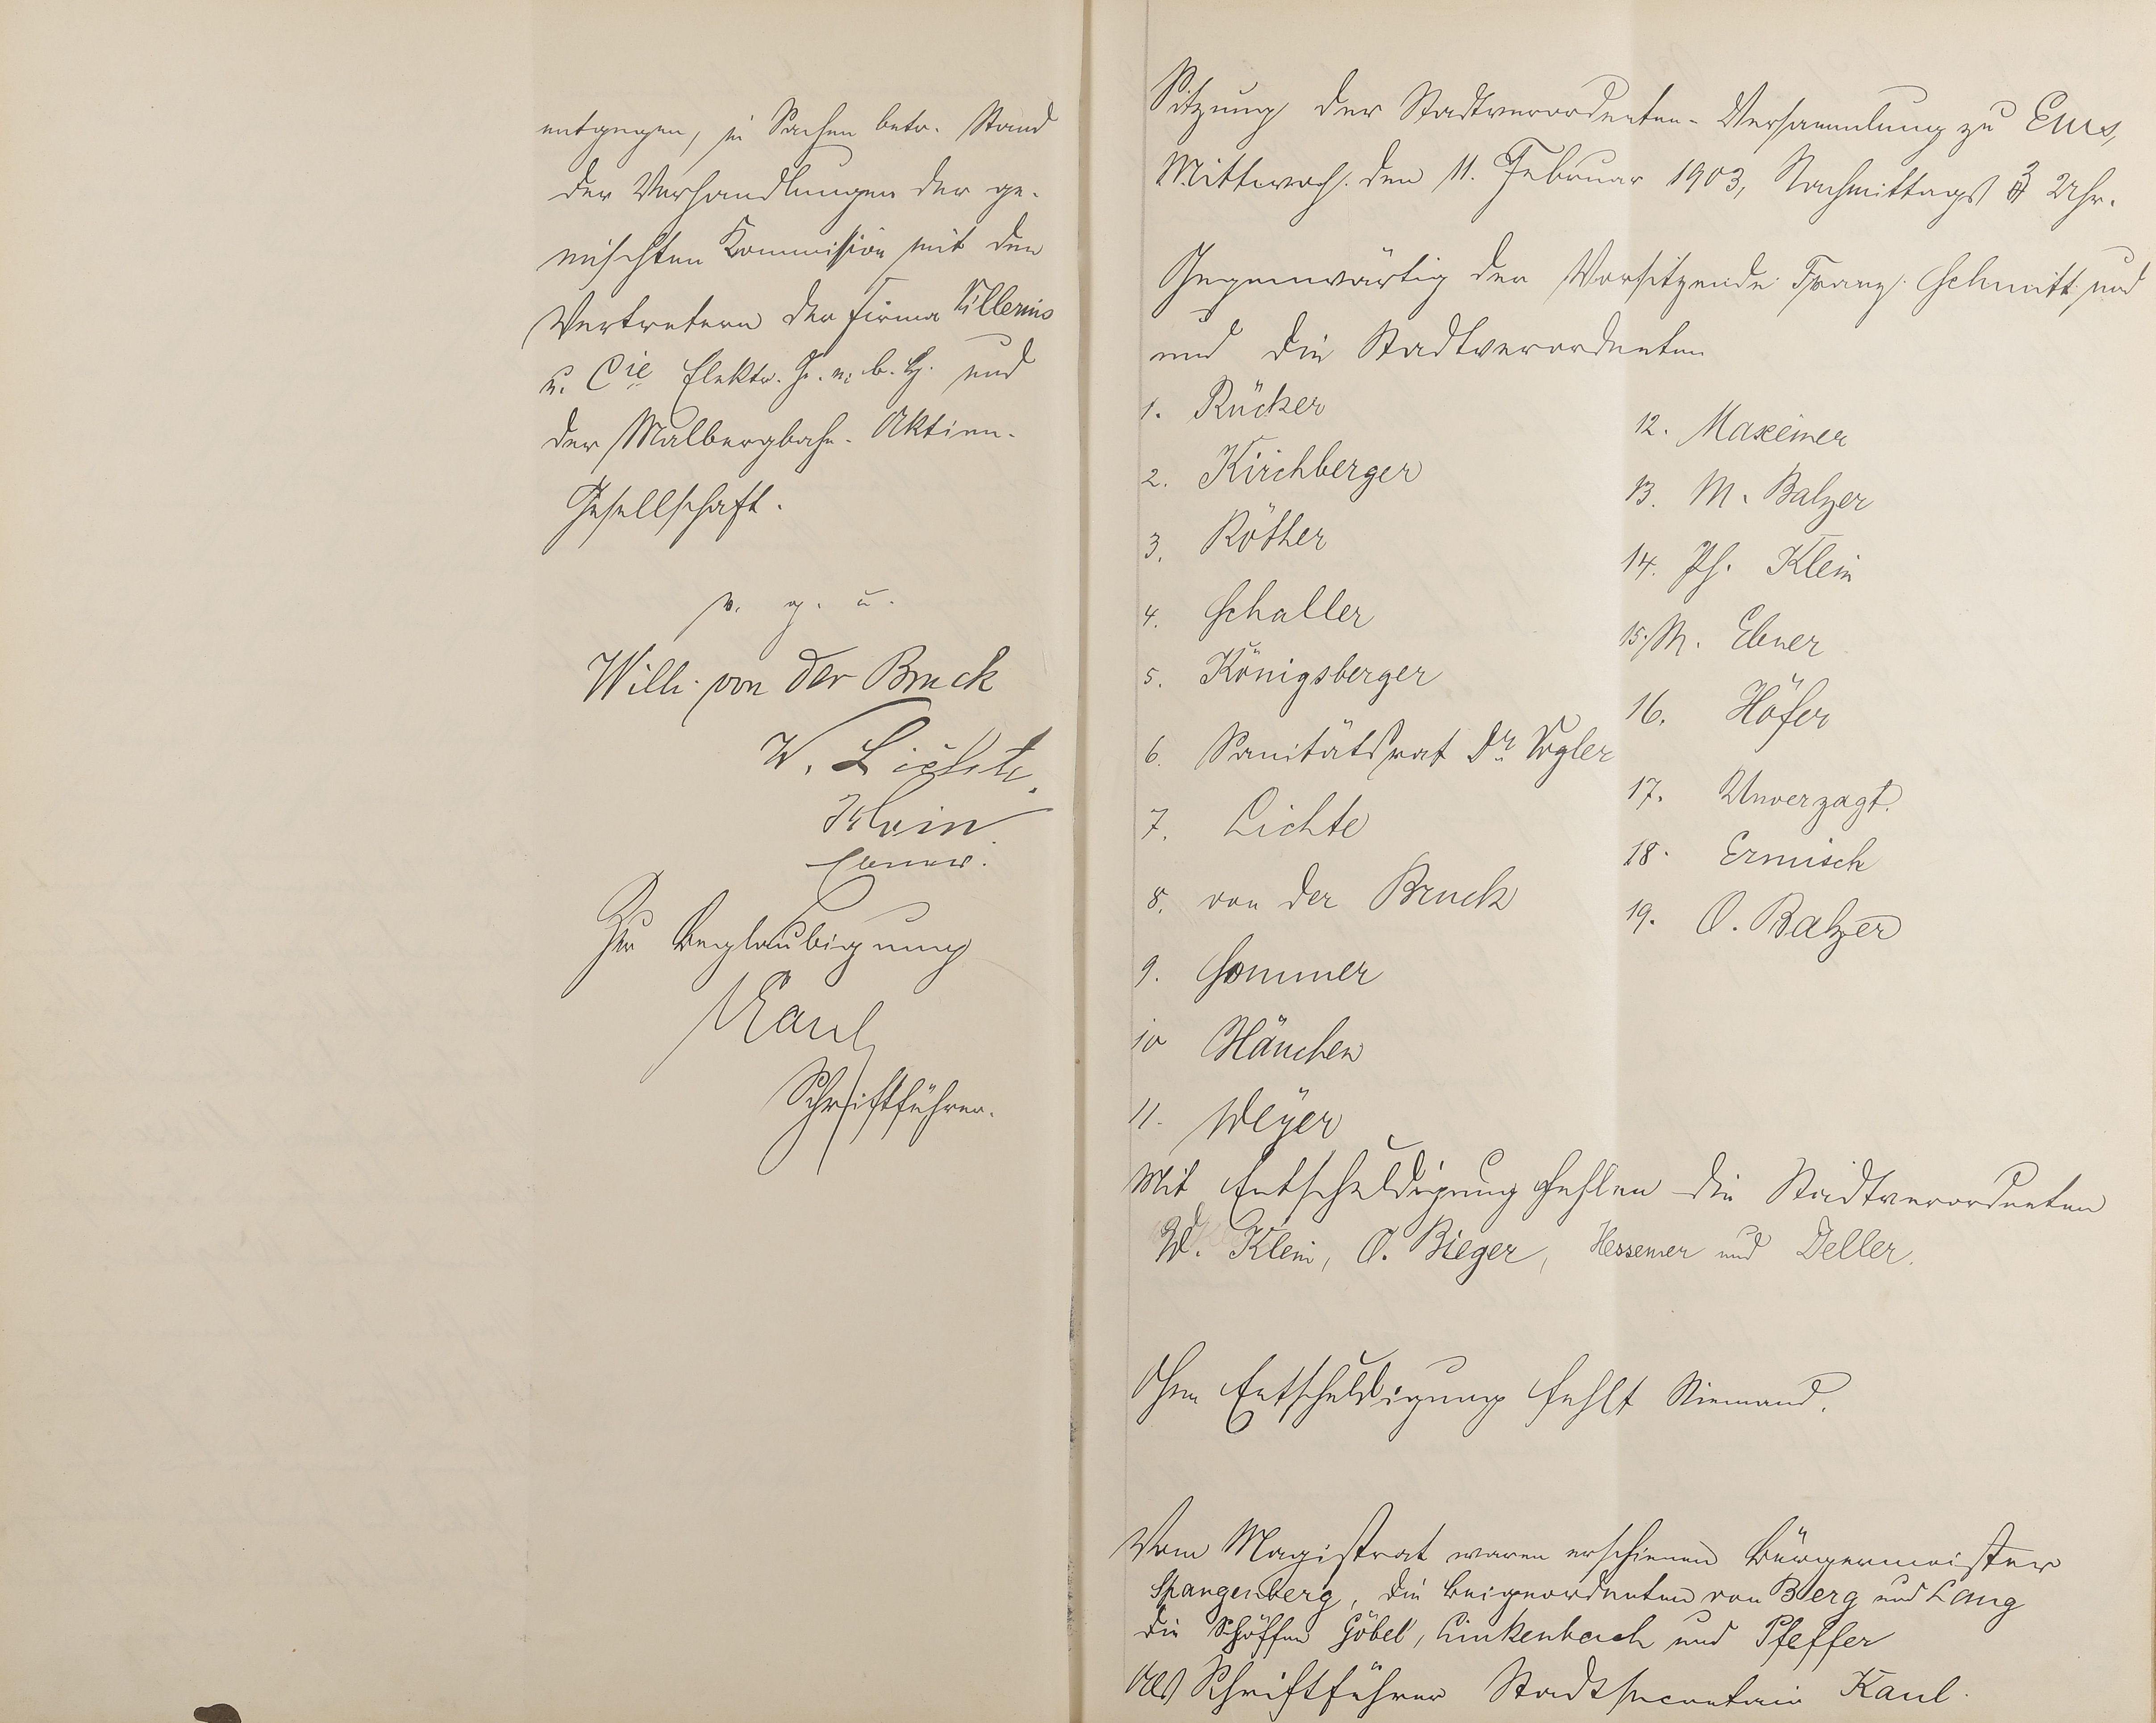 entgegen, in Sachen betr. Stand
der Verhandlungen der ge-
mischten Kommission mit den
Vertretern der Firma
u. Cie Elektr. G. m. b. H. und
der Malbergbahn-Aktien-
Gesellschaft.
v. g. u.
Willi von der Bruck
W. Lichte.
Klein
Ebner.
Zur Beglaubigung
Kaul
Schriftführer.
Sitzung der Stadtverordneten-Versammlung zu Ems,
Mittwoch den 11. Februar 1903, Nachmittags 3 Uhr.
Gegenwärtig der Vorsitzende Franz Schmitt und
und die Stadtverordneten
1. Rücker
2. Kirchberger
3. Röther
4. Schaller
5. Königsberger
6. Sanitätsrat Dr. Vogler
7. Lichte
8. von der Bruck
9. Sommer
10 Hänchen
11. Meyer
12. Maxeiner
13. M. Balzer
14. Ph. Klein
15. M. Ebner
16. Höfer
17. Unverzagt.
18. Ermisch
19. O. Balzer
Mit Entschuldigung fehlen die Stadtverordneten
W. Klein, O. Bieger, Hessemer und Deller.
Ohne Entschuldigung fehlt Niemand.
Vom Magistrat waren erschienen Bürgermeister
Spangenberg, die Beigeordneten von Berg und Lang
die Schöffen Göbel, Linkenbach und Pfeffer
Als Schriftführer Stadtsecretair Kaul.